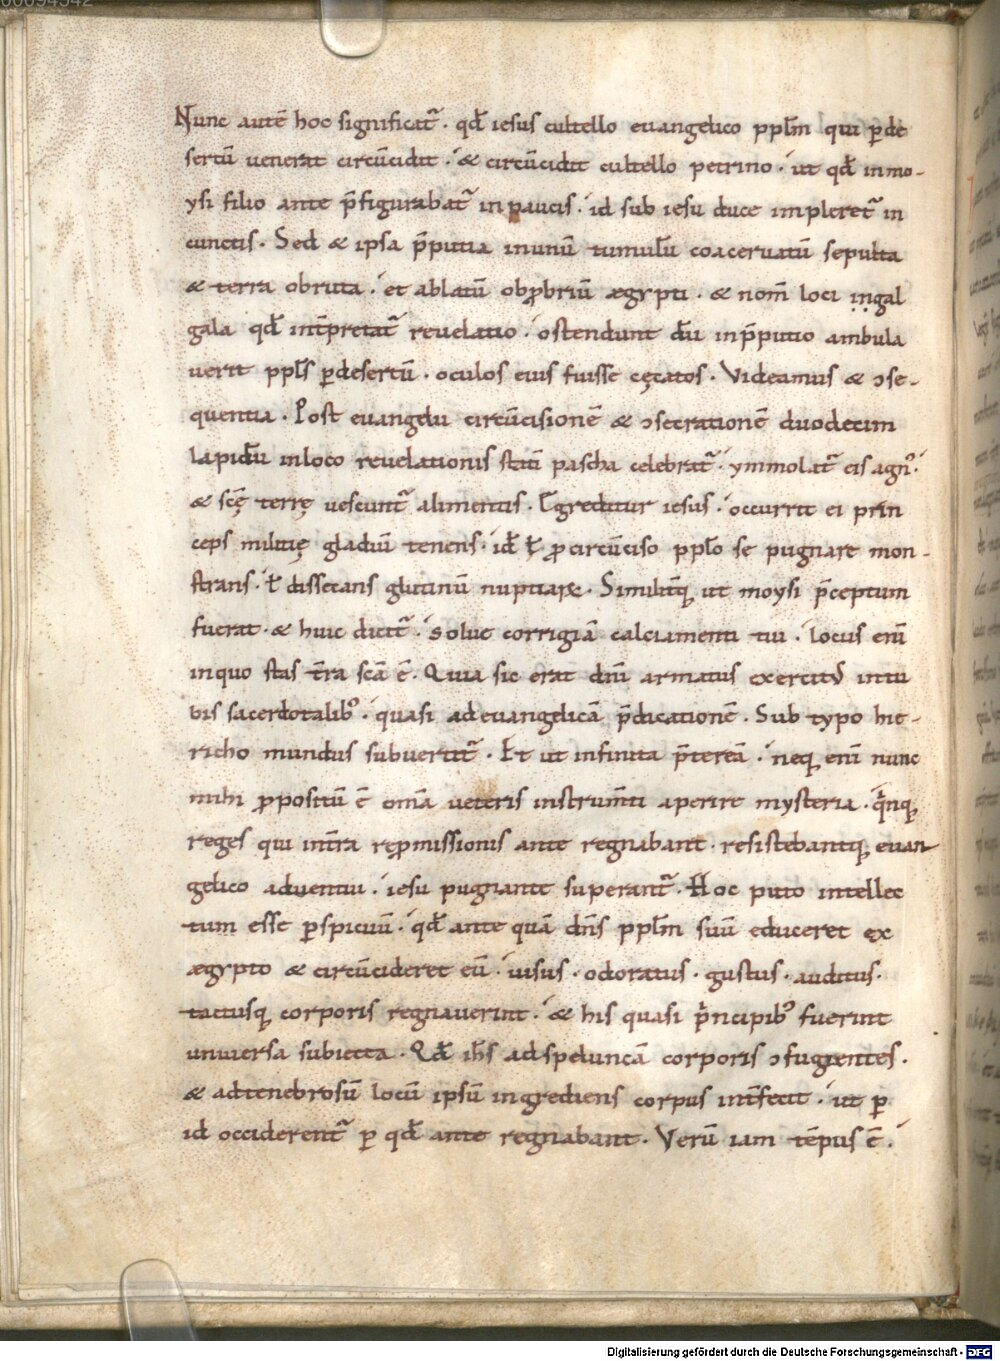 00094542
Nunc autē hoc significat᷑. qđ iesus cultello euangelico ppl̄m qui ꝑde
sertū uenerat circūcidit. & circūcidit cultello petrino. ut qđ inmo-
ysi filio ante p̄figurabat᷑ inpaucis. id sub iesu duce impleret᷑ in
cunctis. Sed & ipsa p̄putia inunū tumulū coaceruatū sepulta
& terra obruta. et ablatū obꝓbriū ægypti. & nom̄ loci ingal
gala qđ int̄pretat᷑ reuelatio. ostendunt dū inp̄putio ambula
uerit ppl̄s ꝑdesertū. oculos eius fuisse cęcatos. Videamus & ↄse-
quentia. Post euangelii circūcisionē & ↄsecrationē duodecim
lapidū inloco reuelationis statī pascha celebrat᷑. ymmolat᷑ eis agn᷒.
& scę̄ terrę uescunt᷑ alimentis. Egreditur iesus. occurrit ei prin
ceps militię gladiū tenens. id ł ꝓcircūciso pplo se pugnare mon-
strans. ł dissecans glutinū nuptiaꝝ. Similitq; ut moysi p̄ceptum
fuerat. & huic dicit᷑. solue corrigiā calciamenti tui. locus enī
inquo stas t̄ra scā ē. Quia sic erat dn̄i armatus exercit᷒ intu
bis sacerdotalib᷒. quasi adeuangelicā p̄dicationē. Sub typo hie-
richo mundus subuertit᷑. Et ut infinita p̄tereā. neq; enī nunc
mihi ꝓpositū ē om̄a ueteris instrum̄ti aperire mysteria. qͥnq;
reges qui int̄ra reꝓmissionis ante regnabant. resistebantq; euan
gelico aduentui. iesu pugnante superant᷑. Hoc puto intellec
tum esse ꝑspicuū. qđ ante quā dn̄s ppl̄m suū educeret ex
ægypto & circūcideret eū. uisus. odoratus. gustus. auditus.
tactusq; corporis regnauerint. & his quasi pͥncipib᷒ fuerint
uniuersa subiecta. Qđ ih̄s adspeluncā corporis ↄfugientes.
& adtenebrosū locū ipsū ingrediens corpus int̄fecit. ut ꝑ
id occiderent᷑ ꝑ qđ ante regnabant. Verū iam tēpus ē.
Digitalisierung gefördert durch die Deutsche Forschungsgemeinschaft - DFG